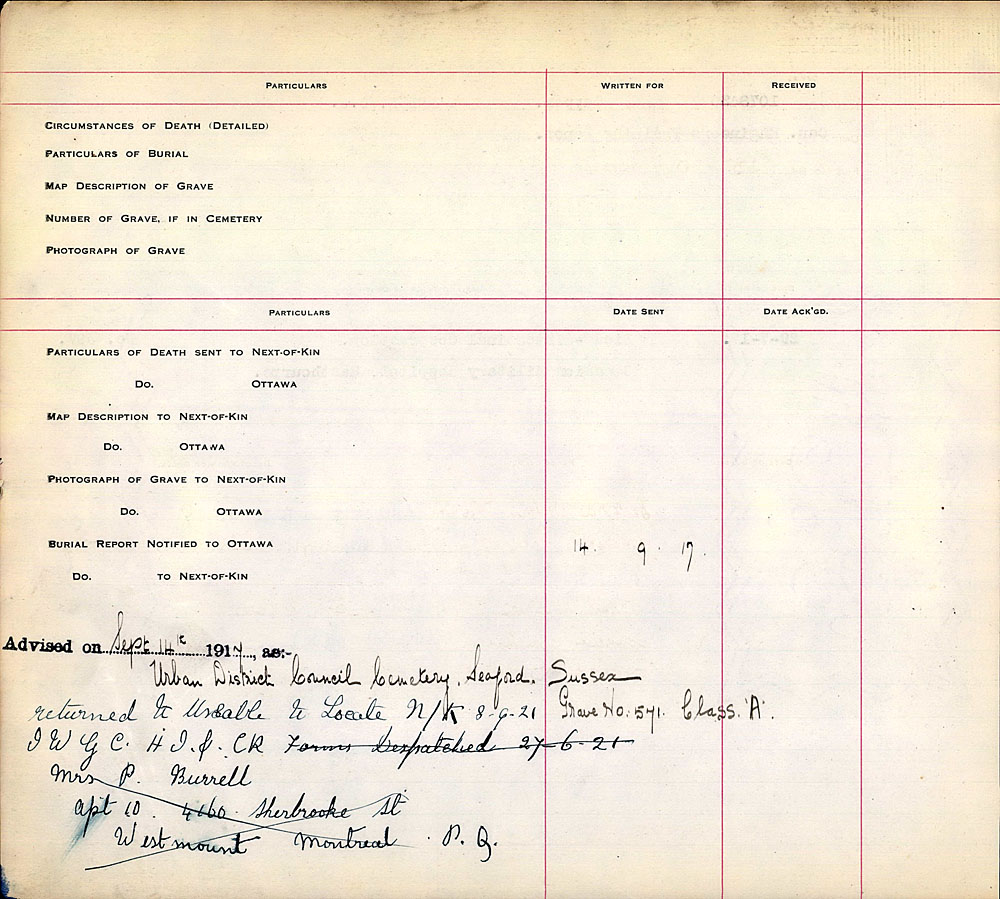 PARTICULARS WRITTEN FOR RECEIVED
CIRCUMSTANCES OF DEATH (DETAILED)
PARTICULARS OF BURIAL
MAP DESCRIPTION OF GRAVE
NUMBER OF GRAVE, IF IN CEMETERY
PHOTOGRAPH OF GRAVE
PARTICULARS DATE SENT DATE ACK'GD.
PARTICULARS OF DEATH SENT TO NEXT-OF-KIN
DO. OTTAWA
MAP DESCRIPTION TO NEXT-OF-KIN
DO. OTTAWA
PHOTOGRAPH OF GRAVE TO NEXT-OF-KIN
DO. OTTAWA
BURIAL REPORT NOTIFIED TO OTTAWA 14. 9. 17.
DO. TO NEXT-OF-KIN
Advised on Sept 14th 1917, as:-
Urban District Council Cemetery, Seaford, Sussex
returned to Unable to Locate N/K 8-9-21 Grave No. 571. Class. 'A'.
I W G C. H I. & CR Forms Despatched 27-6-21
Mrs P. Burrell
apt 10. 4160 Sherbrooke St
Westmount Montreal. P. Q.